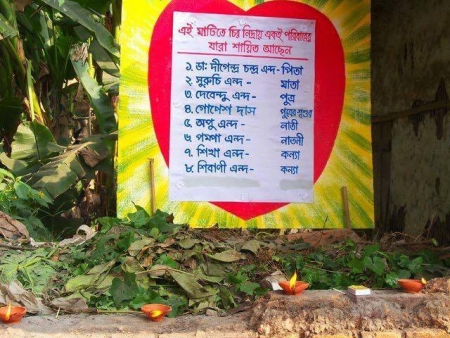 এই মাটিতে চির নিদ্রায় একই পরিবারের
যারা শায়িত আছেন
১. ডা: দীগেন্দ্র চন্দ্র এন্দ- পিতা
২. সুরুচি এন্দ - মাতা
৩. দেবেন্দু এন্দ - পুত্র
৪. গোপেশ দাস
৫. অপু এন্দ - নাতী
৬. পম্পা এন্দ - নাতনী
৭. শিখা এন্দ - কন্যা
৮. শিবাণী এন্দ - কন্যা